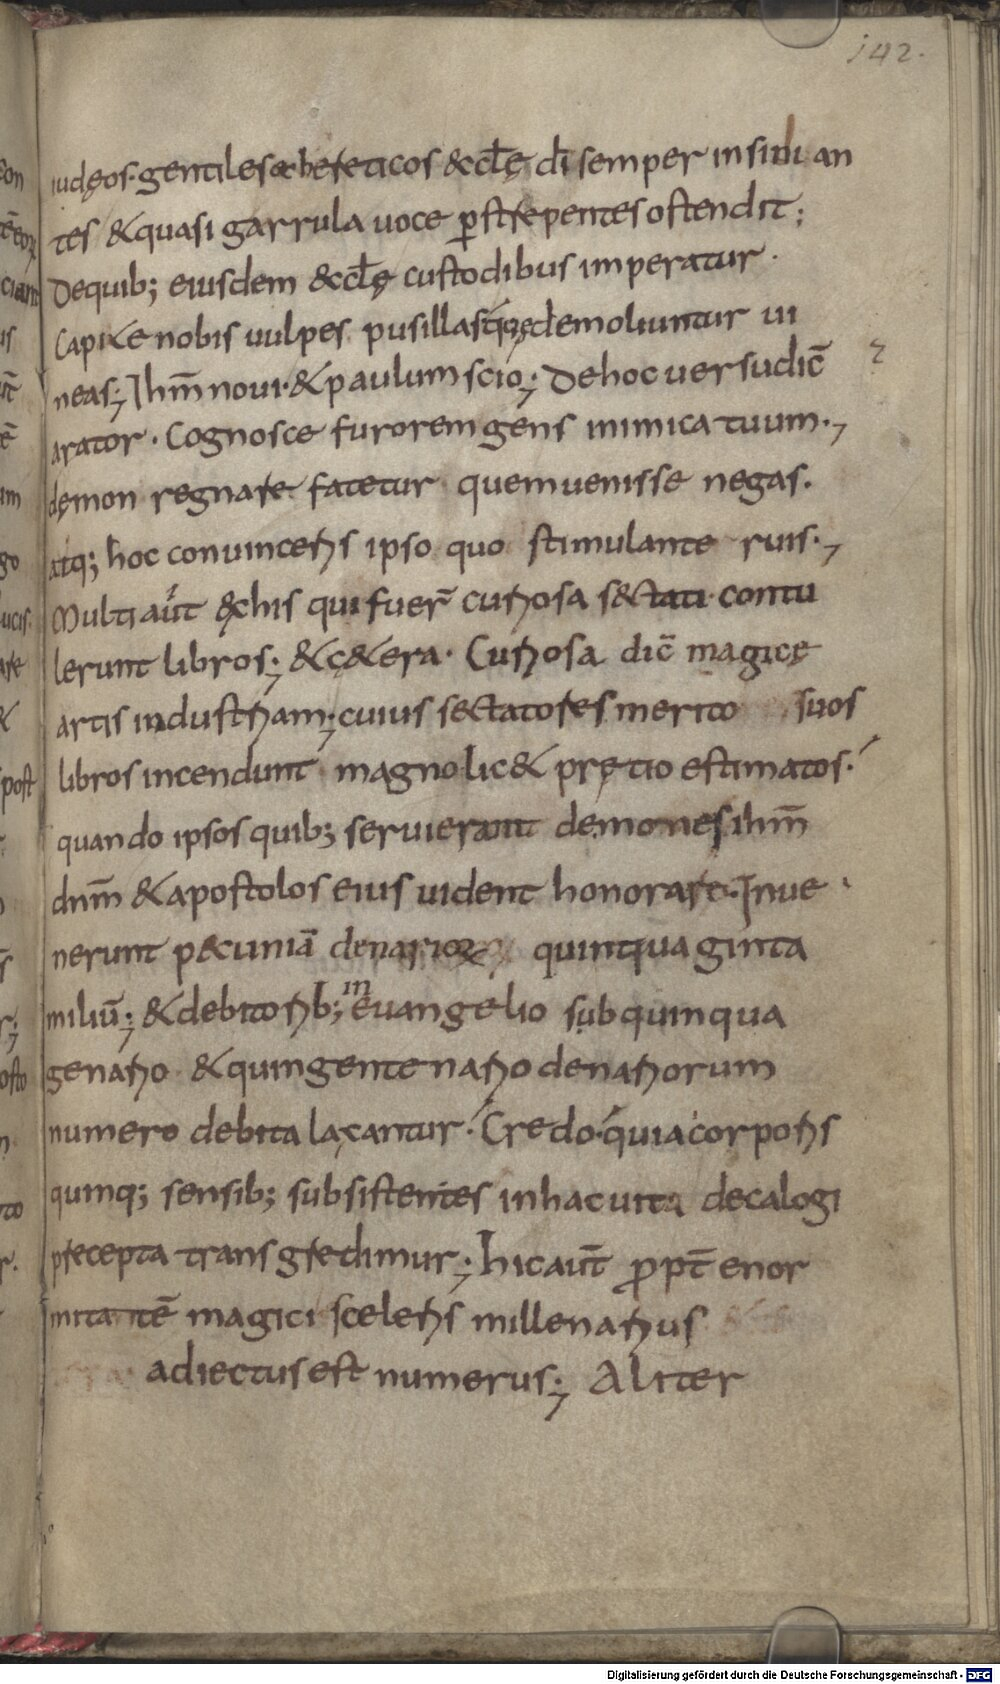 142.
iudęos. gentiles & hereticos & ccl̄ę dī semper insidian
tes & quasi garrula uoce ꝑstrepentes ostendit;
De quib; eiusdem & ccl̄ę custodibus imperatur.
Capite nobis uulpes pusillas quę demoliuntur ui
neas; Ihm̄ noui. & paulum scio; De hoc uersu dic̄
arator. Cognosce furorem gens inimica tuum.,
dęmon regnare fatetur quem uenisse negas.
atq; hoc conuinceris ipso quo stimulante ruis.,
Multi aūt ęx his qui fuer̄ curiosa sectati contu
lerunt libros; & cę&era. Curiosa dic̄ magicę
artis industriam; cuius sectatores merito suos
libros incendunt magno lic& prętio estimatos.
quando ipsos quib; seruierant demones ihm̄
dnm̄ & apostolos eius uident honorare. Inue
nerunt pecuniā denarioꝝ quinquaginta
miliū; & debitorib; in euangelio sub quinqua
genario & quingentenario denariorum
numero debita laxantur. Credo. quia corporis
quinq; sensib; subsistentes in hac uita decalogi
precepta transgredimur; hic aūt ꝓpt̄ enor
mitatē magici sceleris millenarius
adiectus est numerus; Aliter
Digitalisierung gefördert durch die Deutsche Forschungsgemeinschaft - DFG